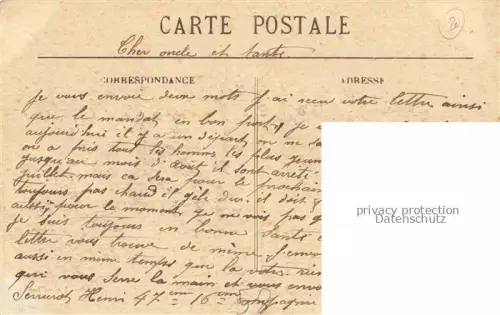 CARTE POSTALE
Cher oncle et tante.
CORRESPONDANCE
ADRESSE
Je vous envoie deux mots j'ai recu votre lettre ainsi
que le mandat en bon port je
aujourd'hui il y a un départ on ne
on a pris tout les hommes les plus jeune
jusqu'au mois d'Août il sont arrêté
juillet mais ca sera pour le prochain
toujours pas chaud il gèle dur il doit
aussi pour le moment je ne vois pas
je suis toujours en bonne santé
lettre vous trouve de même
aussi en même temps que la votre
qui vous serre la main et vous
Henri 47em 16em Compagnie
privacy protection
Datenschutz